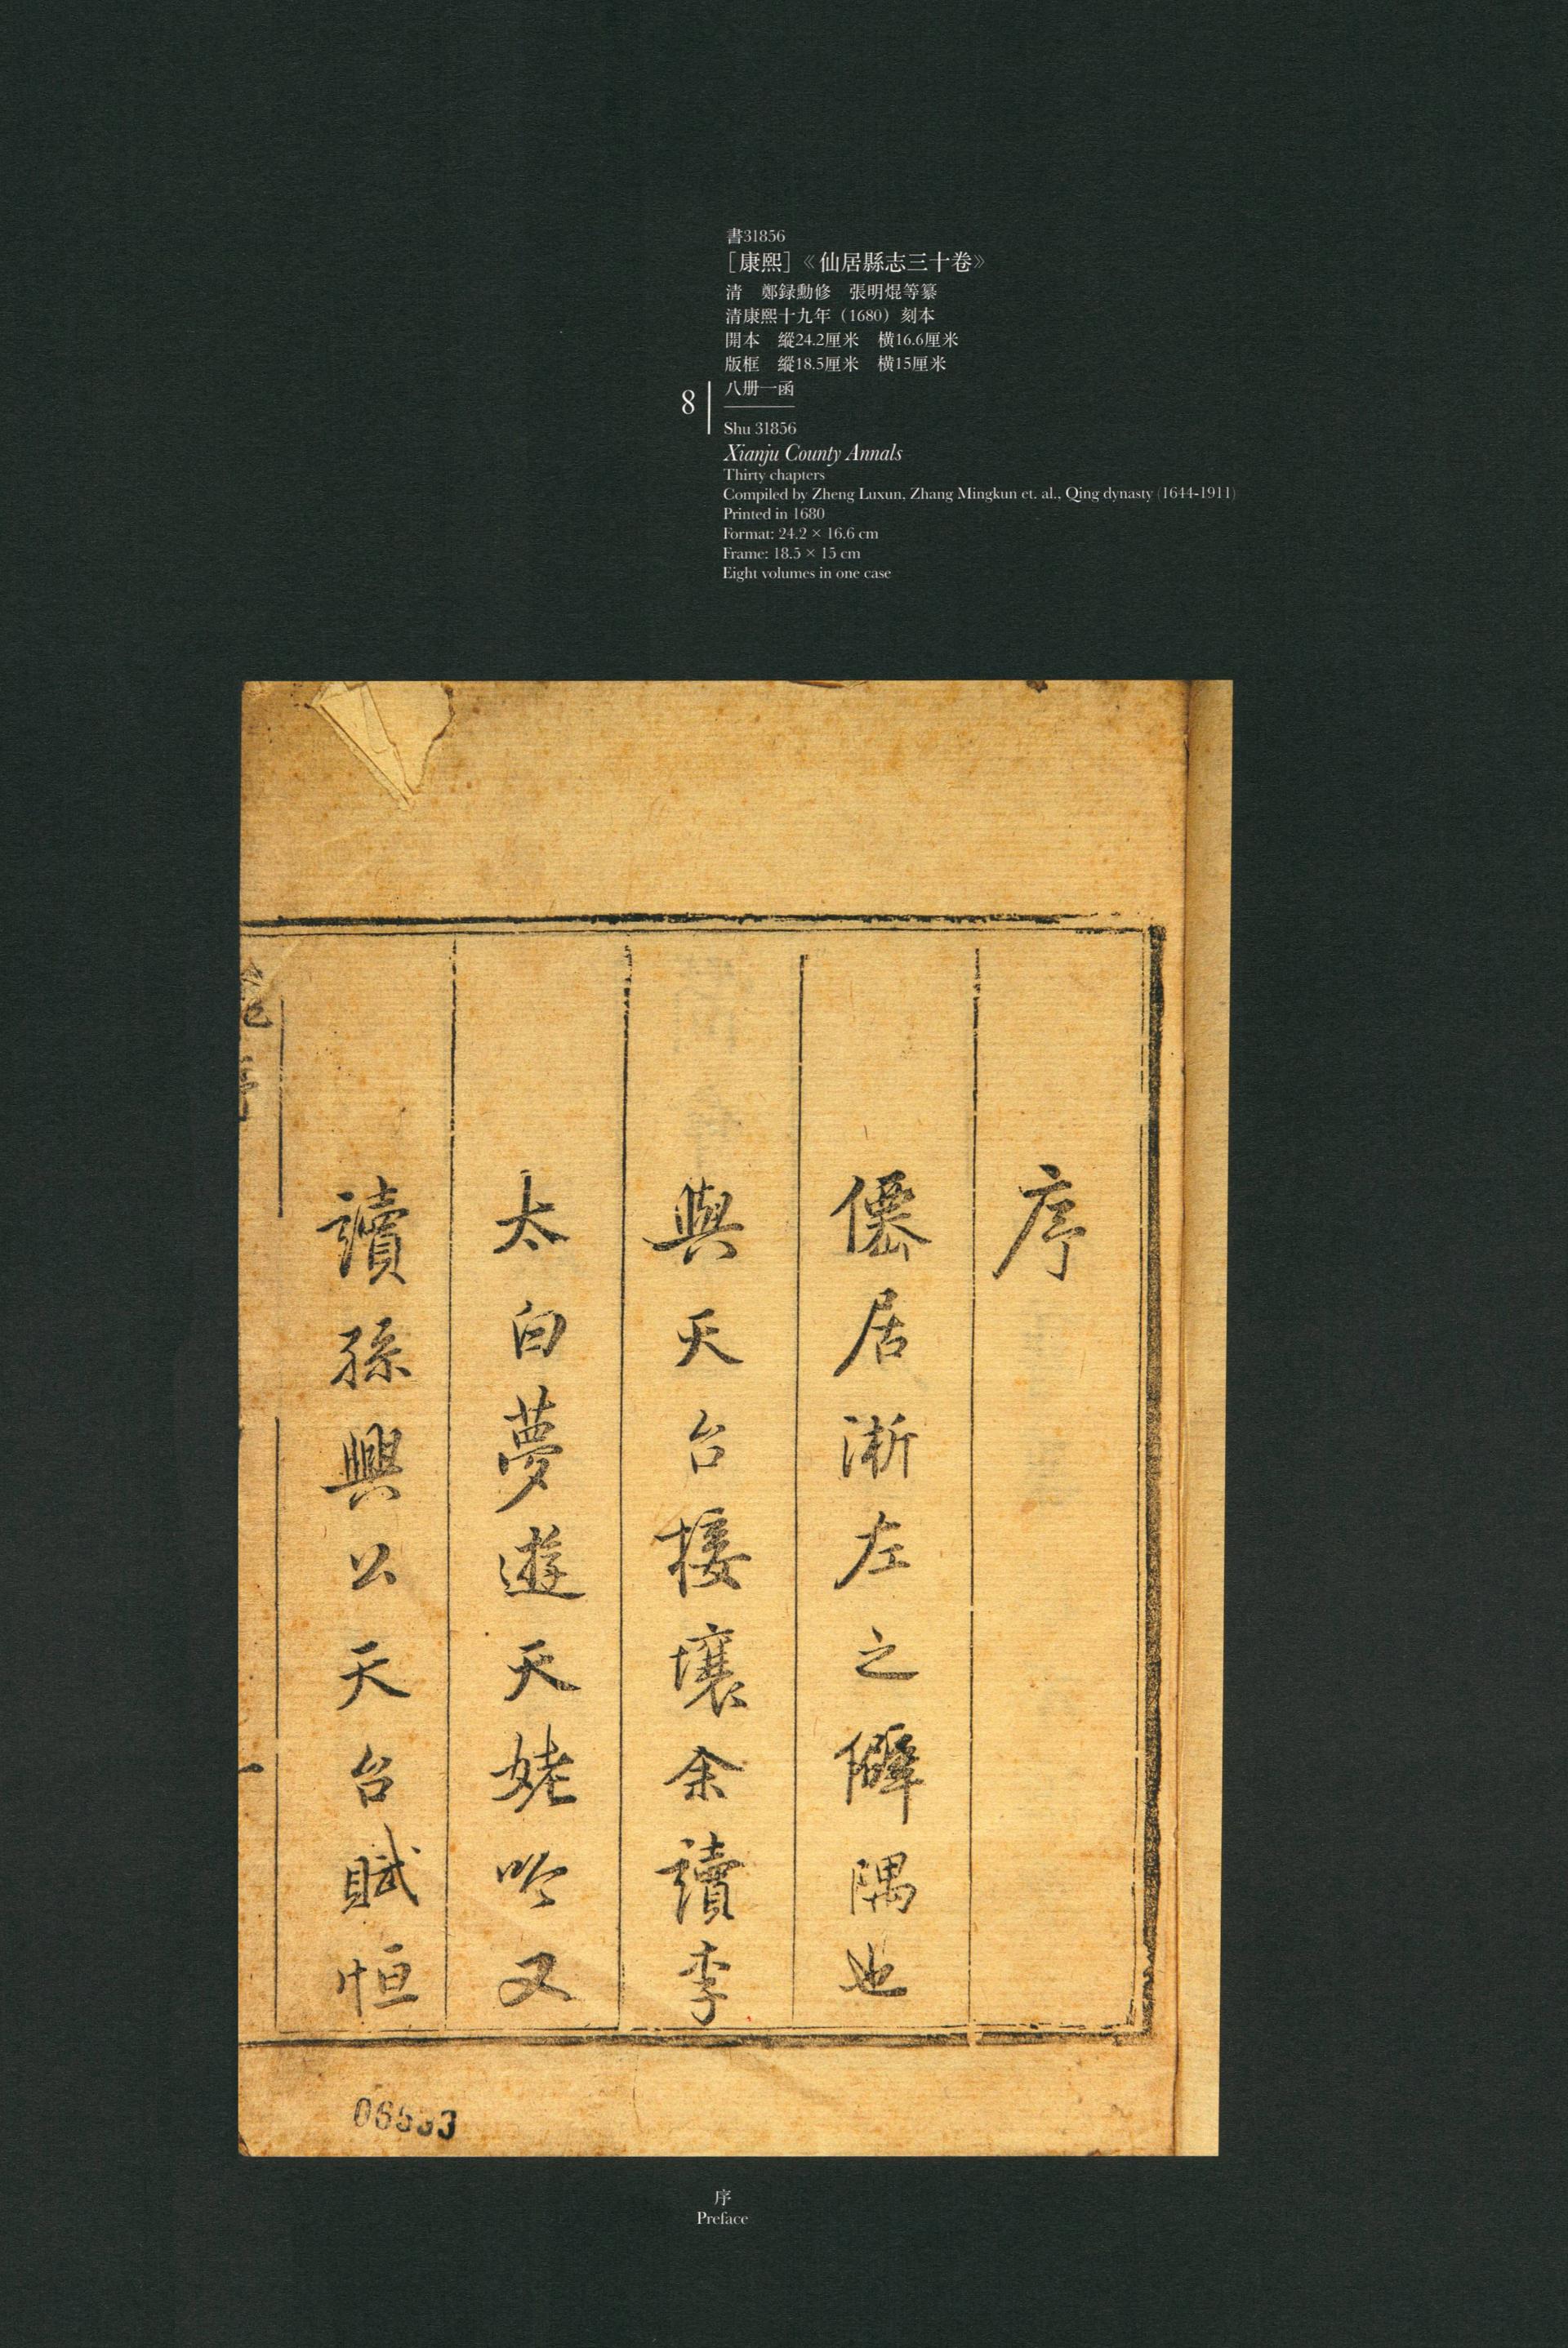 書31856
［康熙］《仙居縣志三十卷》
清　鄭録勳修　張明焜等纂
清康熙十九年（1680）刻本
開本　縱24.2厘米　橫16.6厘米
版框　縱18.5厘米　橫15厘米
八册一函
8
Shu 31856
Xianju County Annals
Thirty chapters
Compiled by Zheng Luxun, Zhang Mingkun et. al., Qing dynasty (1644-1911)
Printed in 1680
Format: 24.2 × 16.6 cm
Frame: 18.5 × 15 cm
Eight volumes in one case
序
僊居淅左之僻隅也
與天台接壤余讀李
太白夢遊天姥吟又
讀孫興公天台賦恒
序
Preface